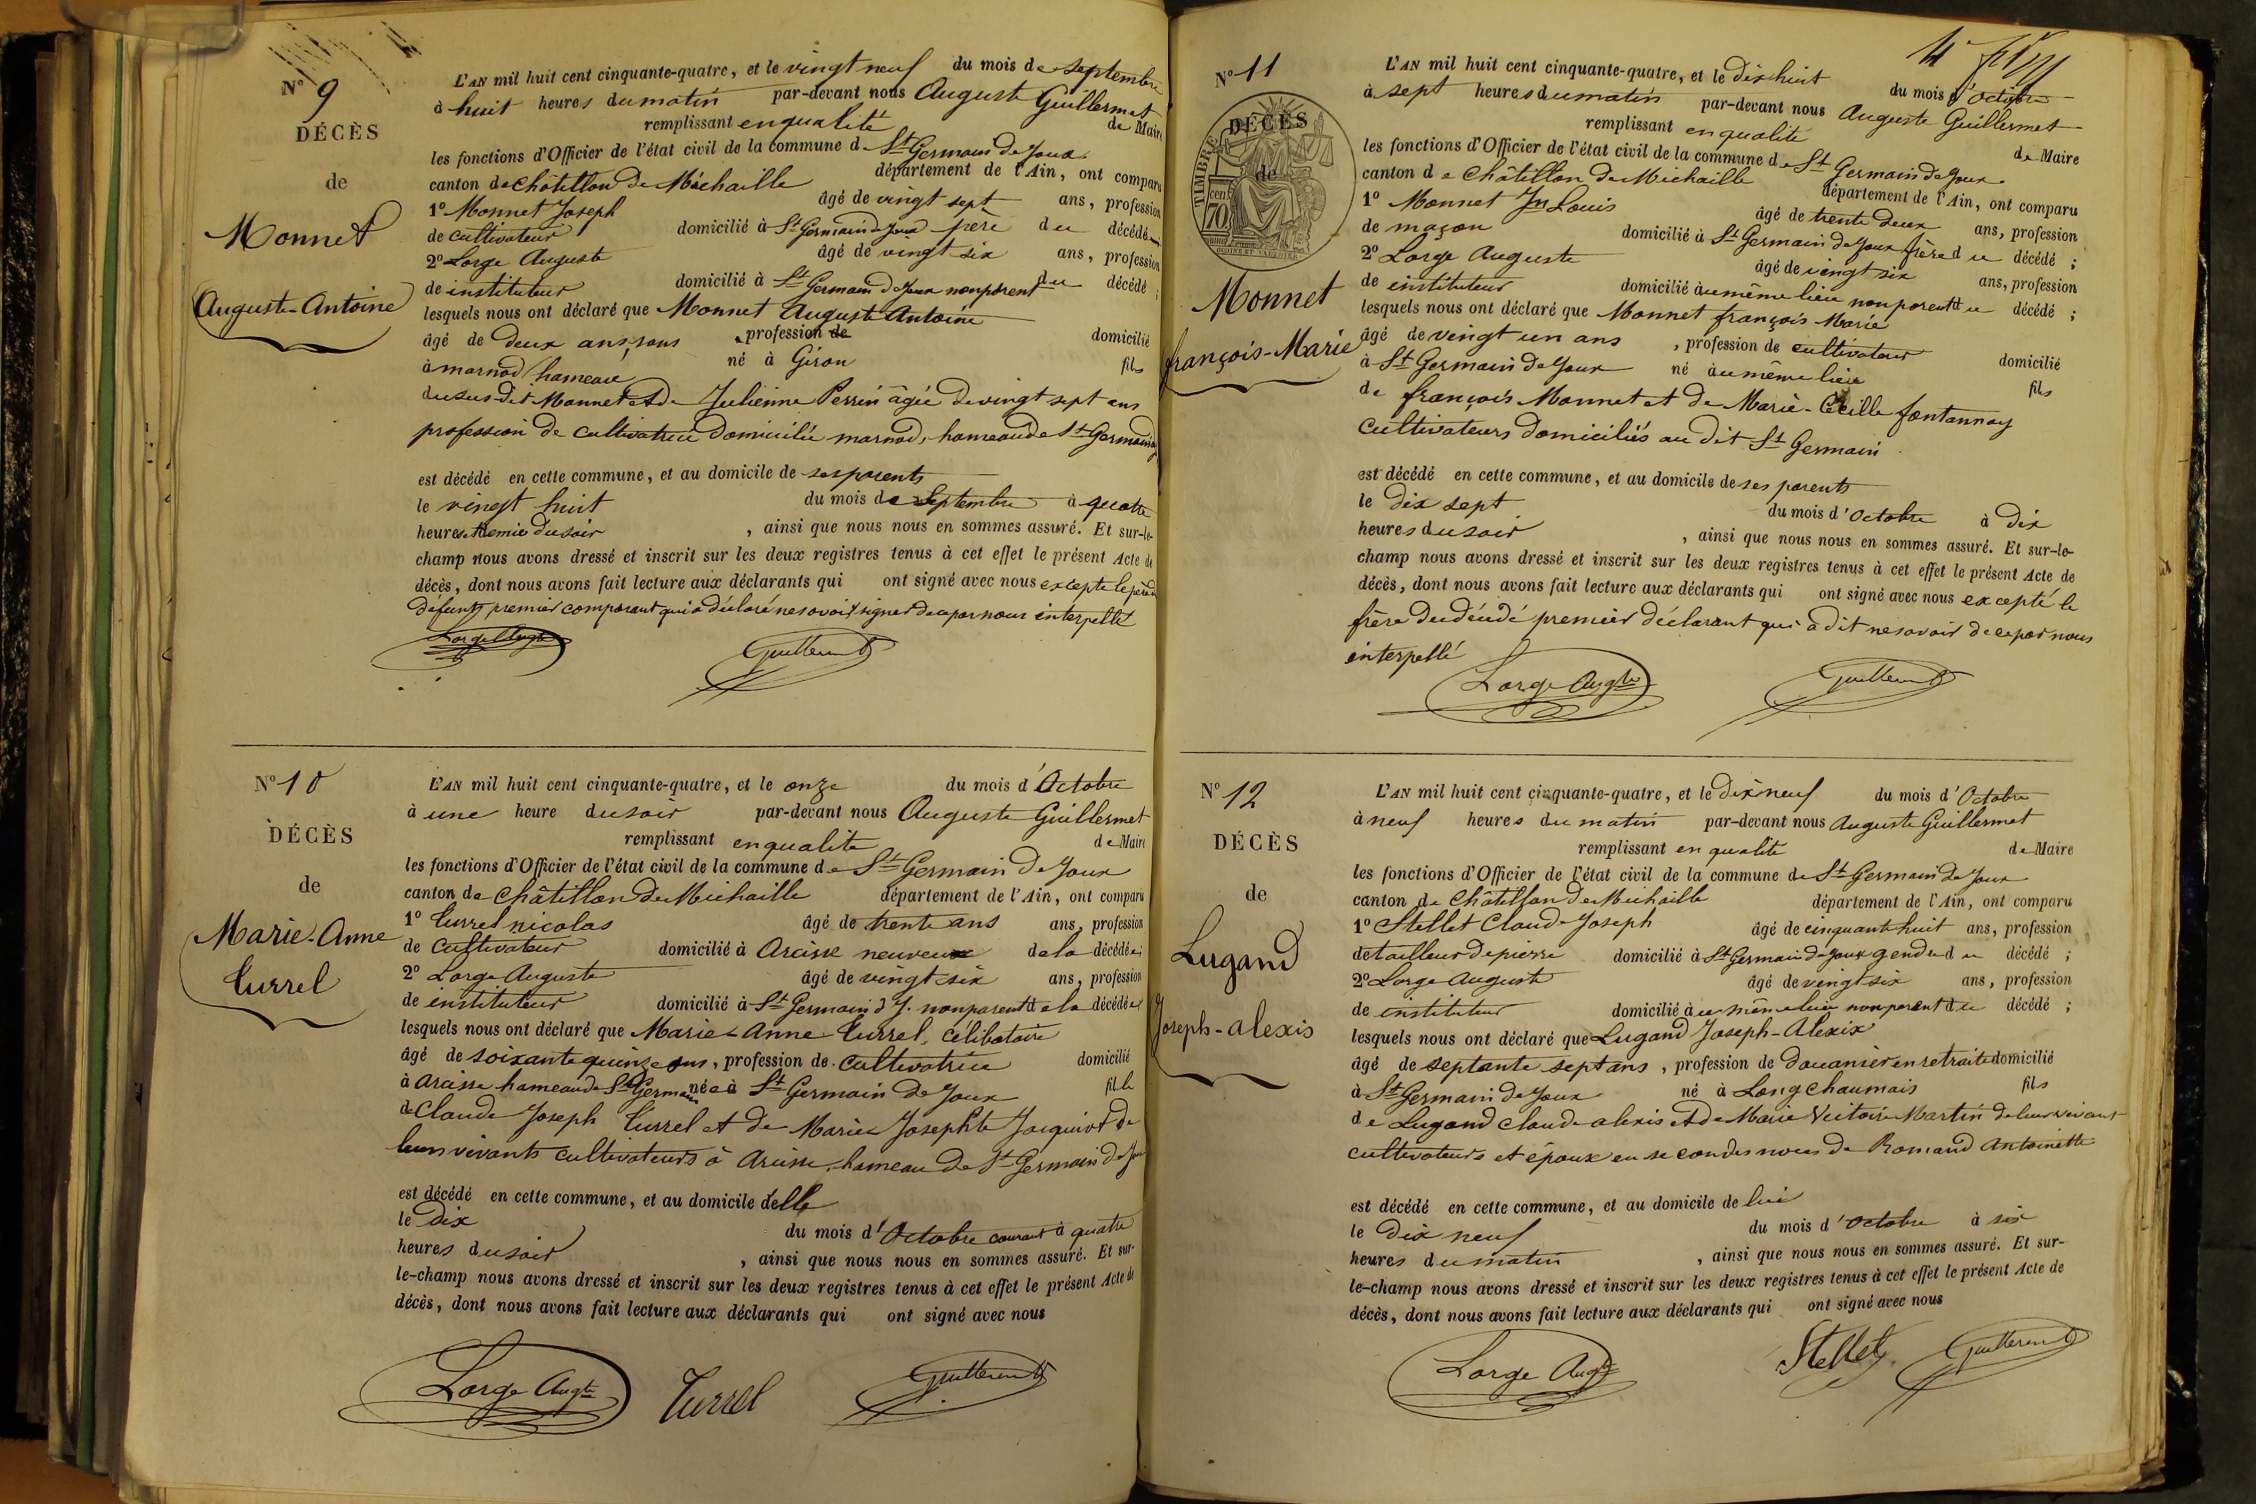 N° 9
DÉCÈS
de
Monnet
Auguste-Antoine
L'AN mil huit cent cinquante-quatre, et le vingt neuf du mois de Septembre
à huit heures du matin par-devant nous Auguste Guillermet
remplissant en qualité de Maire
les fonctions d'Officier de l'état civil de la commune de St Germain de Joux
canton de Châtillon de Michaille département de l'Ain, ont comparu
1° Monnet Joseph âgé de vingt sept ans, profession
de cultivateur domicilié à St Germain de Joux père du décédé
2° Lorge Auguste âgé de vingt six ans, profession
de instituteur domicilié à St Germain de Joux non parent du décédé ;
lesquels nous ont déclaré que Monnet Auguste Antoine
âgé de deux ans, sans profession de domicilié
à marnod hameau né à Giron fils
du susdit Monnet et de Julienne Perrin âgée de vingt sept ans
profession de cultivatrice domiciliée marnod, hameau de St Germain
est décédé en cette commune, et au domicile de ses parents
le vingt huit du mois de Septembre à quatre
heures et demie du soir , ainsi que nous nous en sommes assuré. Et sur-le-
champ nous avons dressé et inscrit sur les deux registres tenus à cet effet le présent Acte de
décès, dont nous avons fait lecture aux déclarants qui ont signé avec nous excepté le père du
défunt, premier comparant qui a déclaré ne savoir signer de ce par nous interpellé
Lorge Augte Guillermet
N° 10
DÉCÈS
de
Marie-Anne
Turrel
L'AN mil huit cent cinquante-quatre, et le onze du mois d'Octobre
à une heure du soir par-devant nous Auguste Guillermet
remplissant en qualité de Maire
les fonctions d'Officier de l'état civil de la commune de St Germain de Joux
canton de Châtillon de Michaille département de l'Ain, ont comparu
1° Turrel nicolas âgé de trente ans ans, profession
de cultivateur domicilié à Arcisse neveu de la décédée
2° Lorge Auguste âgé de vingt six ans, profession
de instituteur domicilié à St Germain d J. non parent de la décédée
lesquels nous ont déclaré que Marie-Anne Turrel, célibataire
âgé de soixante quinze ans, profession de cultivatrice domicilié
à Arcisse hameau de St Germain née à St Germain de Joux fille
de Claude Joseph Turrel et de Marie Josephte Jacquinot de
leurs vivants cultivateurs à Arcisse, hameau de St Germain de Joux
est décédé en cette commune, et au domicile d'elle
le dix du mois d'Octobre courant à quatre
heures du soir , ainsi que nous nous en sommes assuré. Et sur-
le-champ nous avons dressé et inscrit sur les deux registres tenus à cet effet le présent Acte de
décès, dont nous avons fait lecture aux déclarants qui ont signé avec nous
Lorge Augte Turrel Guillermet
N° 11
TIMBRE
cen.
70
DÉCÈS
de
Monnet
françois-Marie
L'AN mil huit cent cinquante-quatre, et le dix huit du mois d'Octobre
à sept heures du matin par-devant nous Auguste Guillermet
remplissant en qualité de Maire
les fonctions d'Officier de l'état civil de la commune de St Germain de Joux
canton de Châtillon de Michaille département de l'Ain, ont comparu
1° Monnet Jn Louis âgé de trente deux ans, profession
de maçon domicilié à St Germain de Joux frère du décédé ;
2° Lorge Auguste âgé de vingt six ans, profession
de instituteur domicilié au même lieu non parent du décédé ;
lesquels nous ont déclaré que Monnet françois Marie
âgé de vingt un ans , profession de cultivateur domicilié
à St Germain de Joux né au même lieu fils
de françois Monnet et de Marie-Cécille fontannay
cultivateurs domiciliés au dit St Germain
est décédé en cette commune, et au domicile de ses parents
le dix sept du mois d'Octobre à dix
heures du soir , ainsi que nous nous en sommes assuré. Et sur-le-
champ nous avons dressé et inscrit sur les deux registres tenus à cet effet le présent Acte de
décès, dont nous avons fait lecture aux déclarants qui ont signé avec nous excepté le
frère du décédé premier déclarant qui a dit ne savoir de ce par nous
interpellé
Lorge Augte Guillermet
N° 12
DÉCÈS
de
Lugand
Joseph-alexis
L'AN mil huit cent cinquante-quatre, et le dix neuf du mois d'Octobre
à neuf heures du matin par-devant nous Auguste Guillermet
remplissant en qualité de Maire
les fonctions d'Officier de l'état civil de la commune de St Germain de Joux
canton de Châtillon de Michaille département de l'Ain, ont comparu
1° Stellet Claude Joseph âgé de cinquante huit ans, profession
de tailleur de pierre domicilié à St Germain de Joux gendre du décédé ;
2° Lorge Auguste âgé de vingt six ans, profession
de instituteur domicilié au même lieu non parent du décédé ;
lesquels nous ont déclaré que Lugand Joseph-Alexix
âgé de septante sept ans , profession de douanier en retraite domicilié
à St Germain de Joux né à Longchaumais fils
de Lugand Claude alexis et de Marie Victoire Martin de leur vivant
cultivateurs et époux en secondes noces de Romand Antoinette
est décédé en cette commune, et au domicile de lui
le dix neuf du mois d'Octobre à six
heures du matin , ainsi que nous nous en sommes assuré. Et sur-
le-champ nous avons dressé et inscrit sur les deux registres tenus à cet effet le présent Acte de
décès, dont nous avons fait lecture aux déclarants qui ont signé avec nous
Lorge Augte Stellet Guillermet